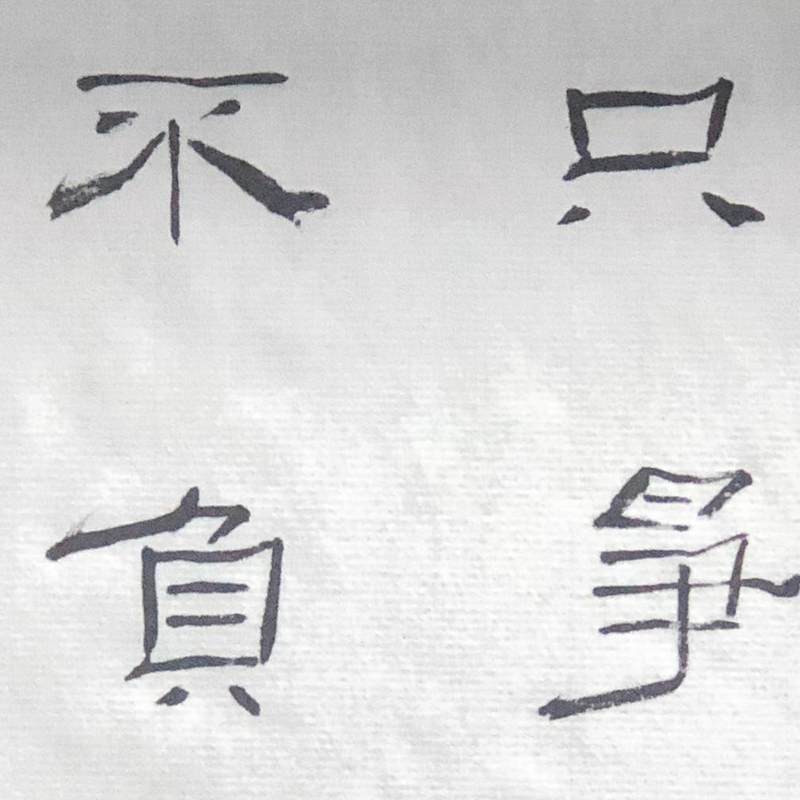 只爭
不負